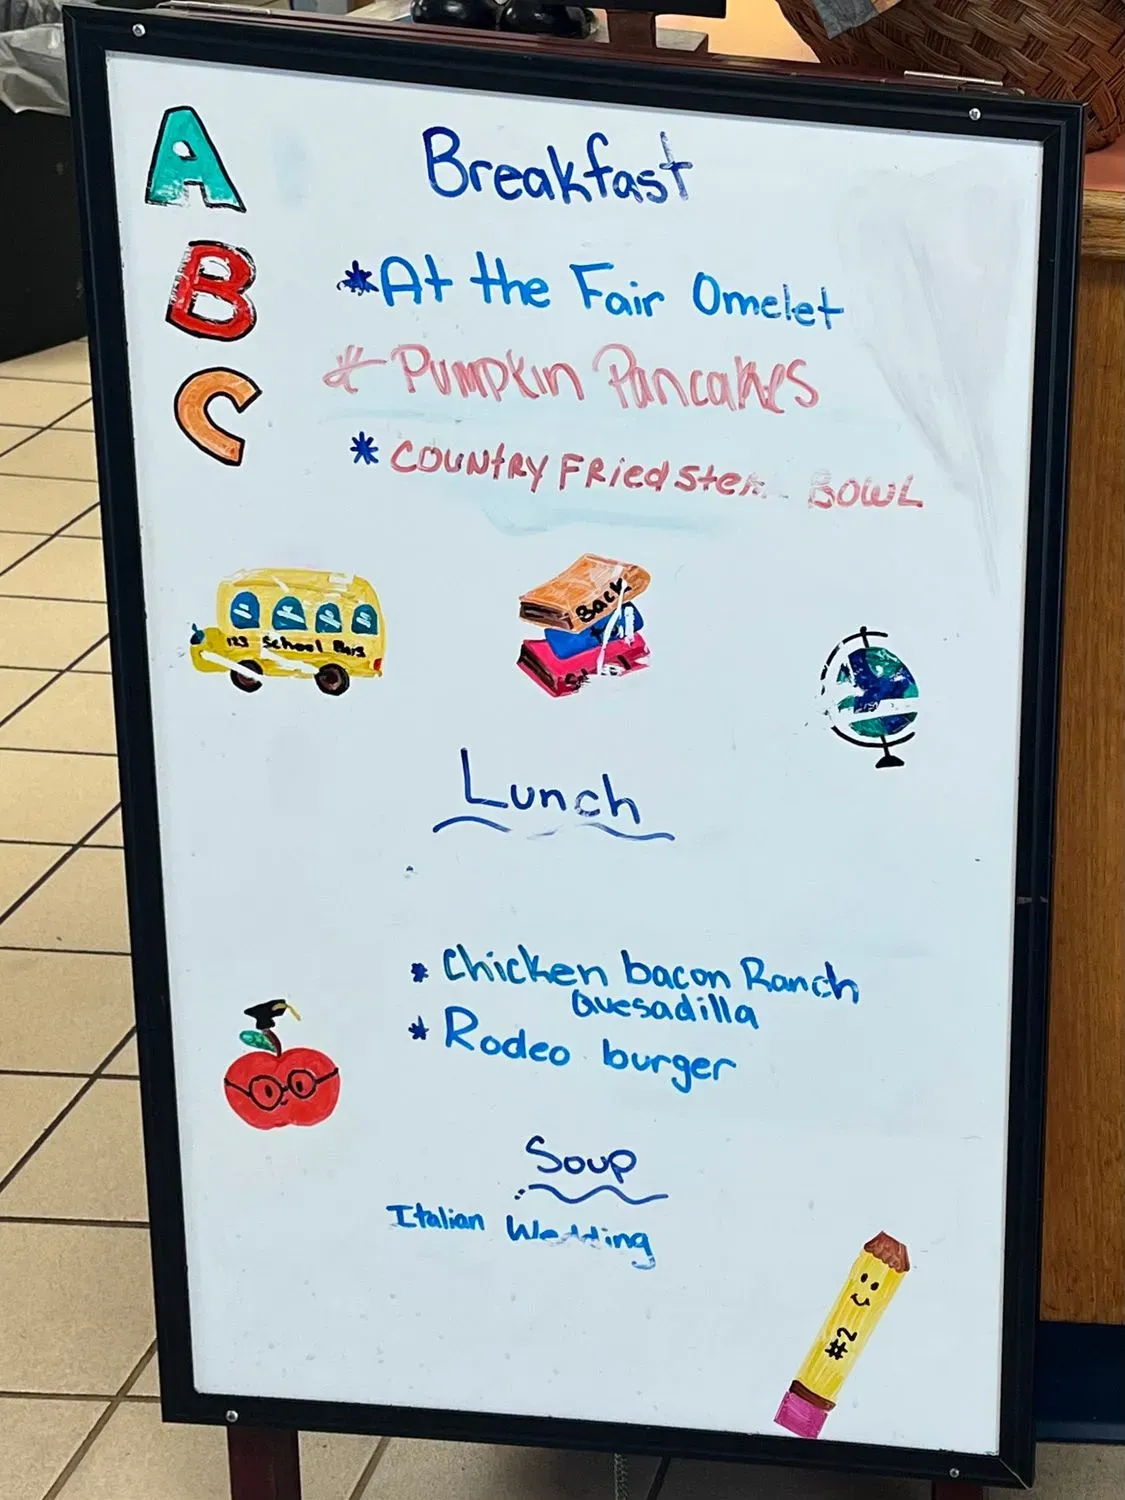 A
Breakfast
B
*At the Fair Omelet
* Pumpkin Pancakes
C
* COUNTRY FRied Ste BOWL
123 School Bus
Back
to
Lunch
* Chicken bacon Ranch
Quesadilla
* Rodeo burger
Soup
Italian Wedding
#2